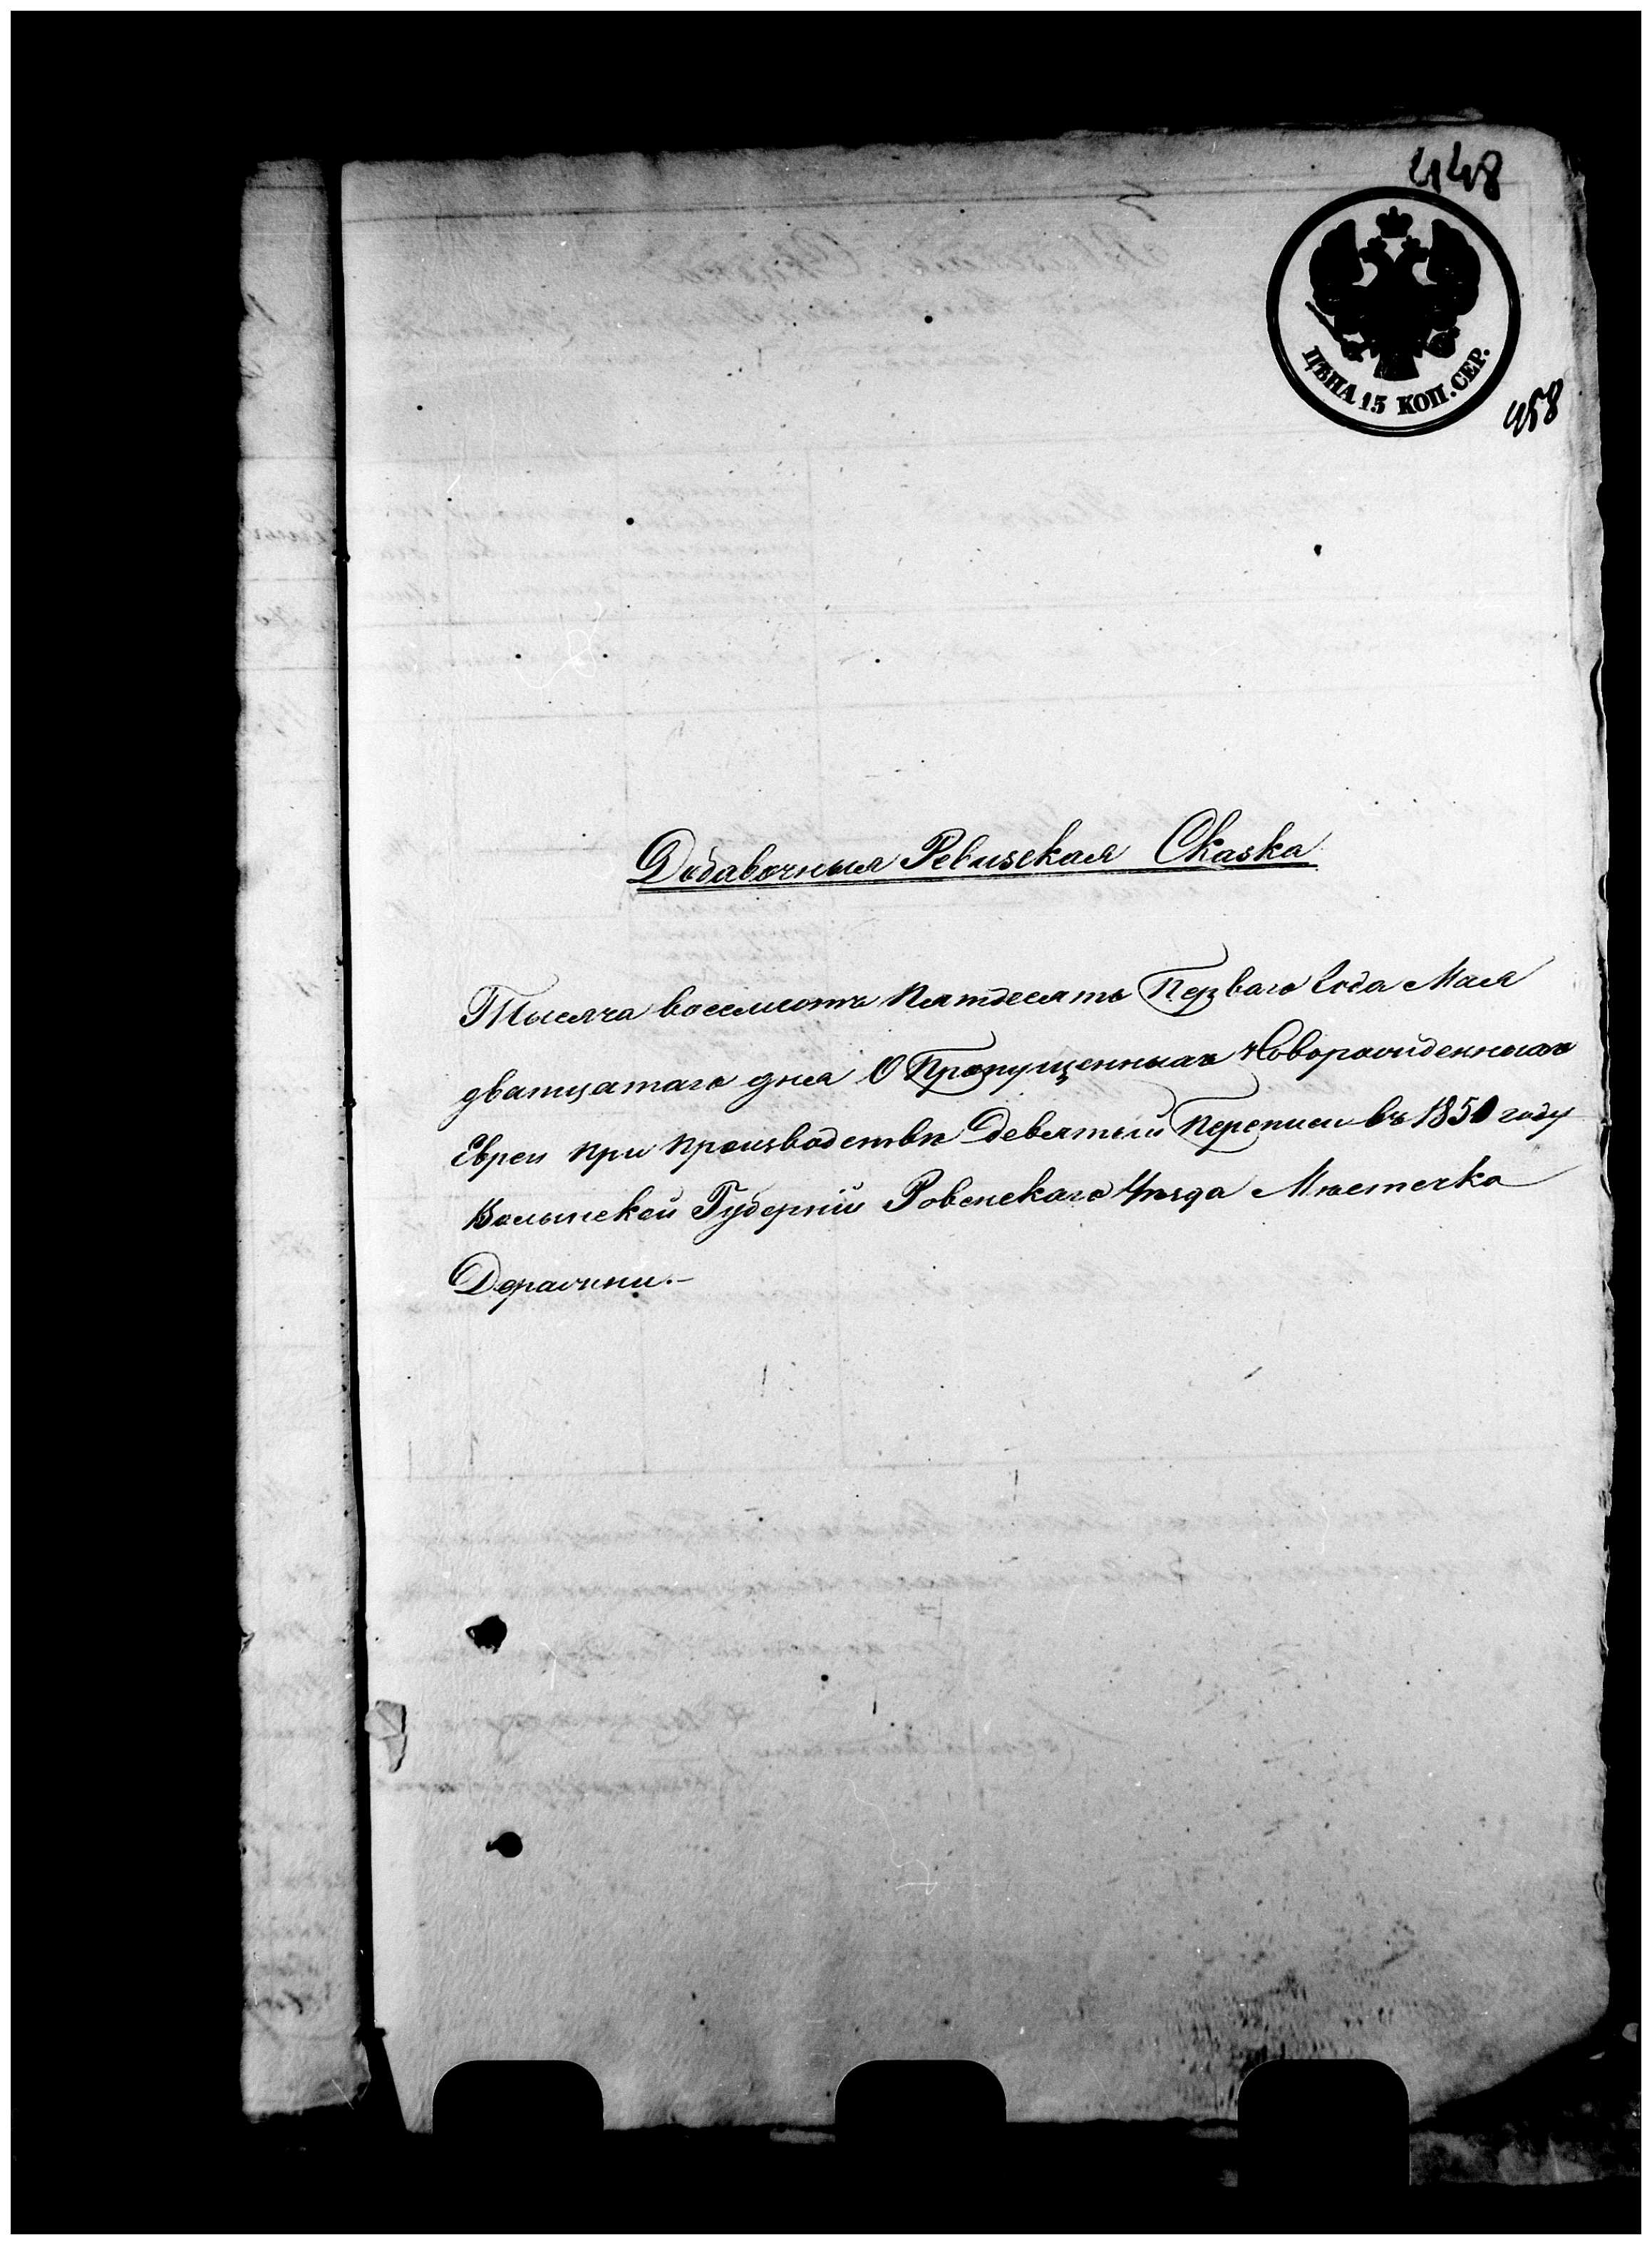 448
ЦѢНА 15 КОП. СЕР.
458
Добавочныя Ревизская Сказка
Тысяча восемсотъ Пятдесятъ Перваго Года Мая
дватцатаго дня О Пропущенныхъ Новорожденныхъ
Евреи при производствѣ Девятый Переписи въ 1850 году
Волынской Губерніи Ровенскаго Уѣзда Мѣстечка
Деражни.–